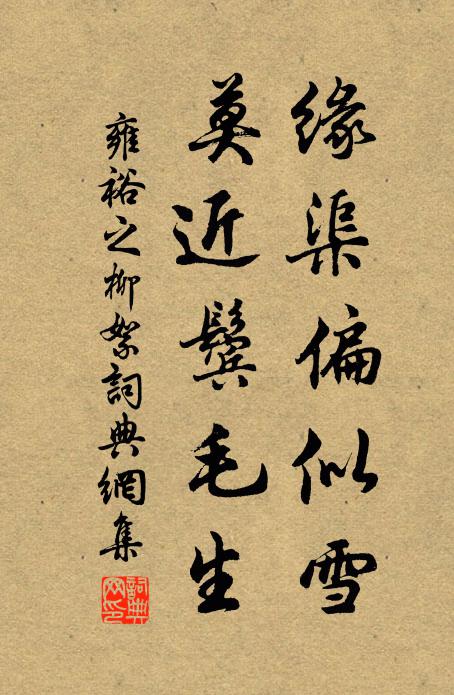 緣渠偏似雪
莫近鬢毛生
雍裕之柳絮詞典網集
詞典網印